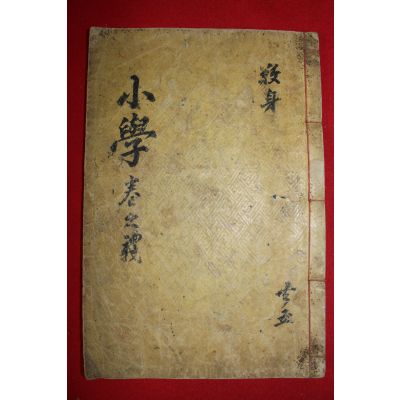 敬身
共五
小學 卷之禮